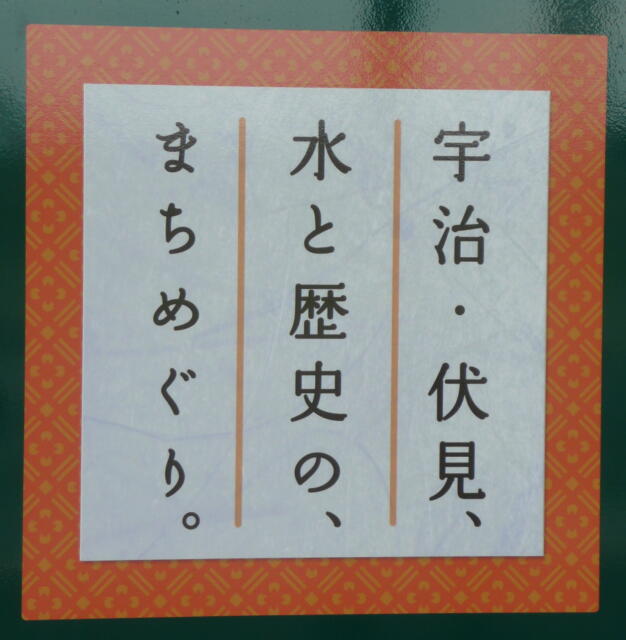 宇治・伏見、
水と歴史の、
まちめぐり。